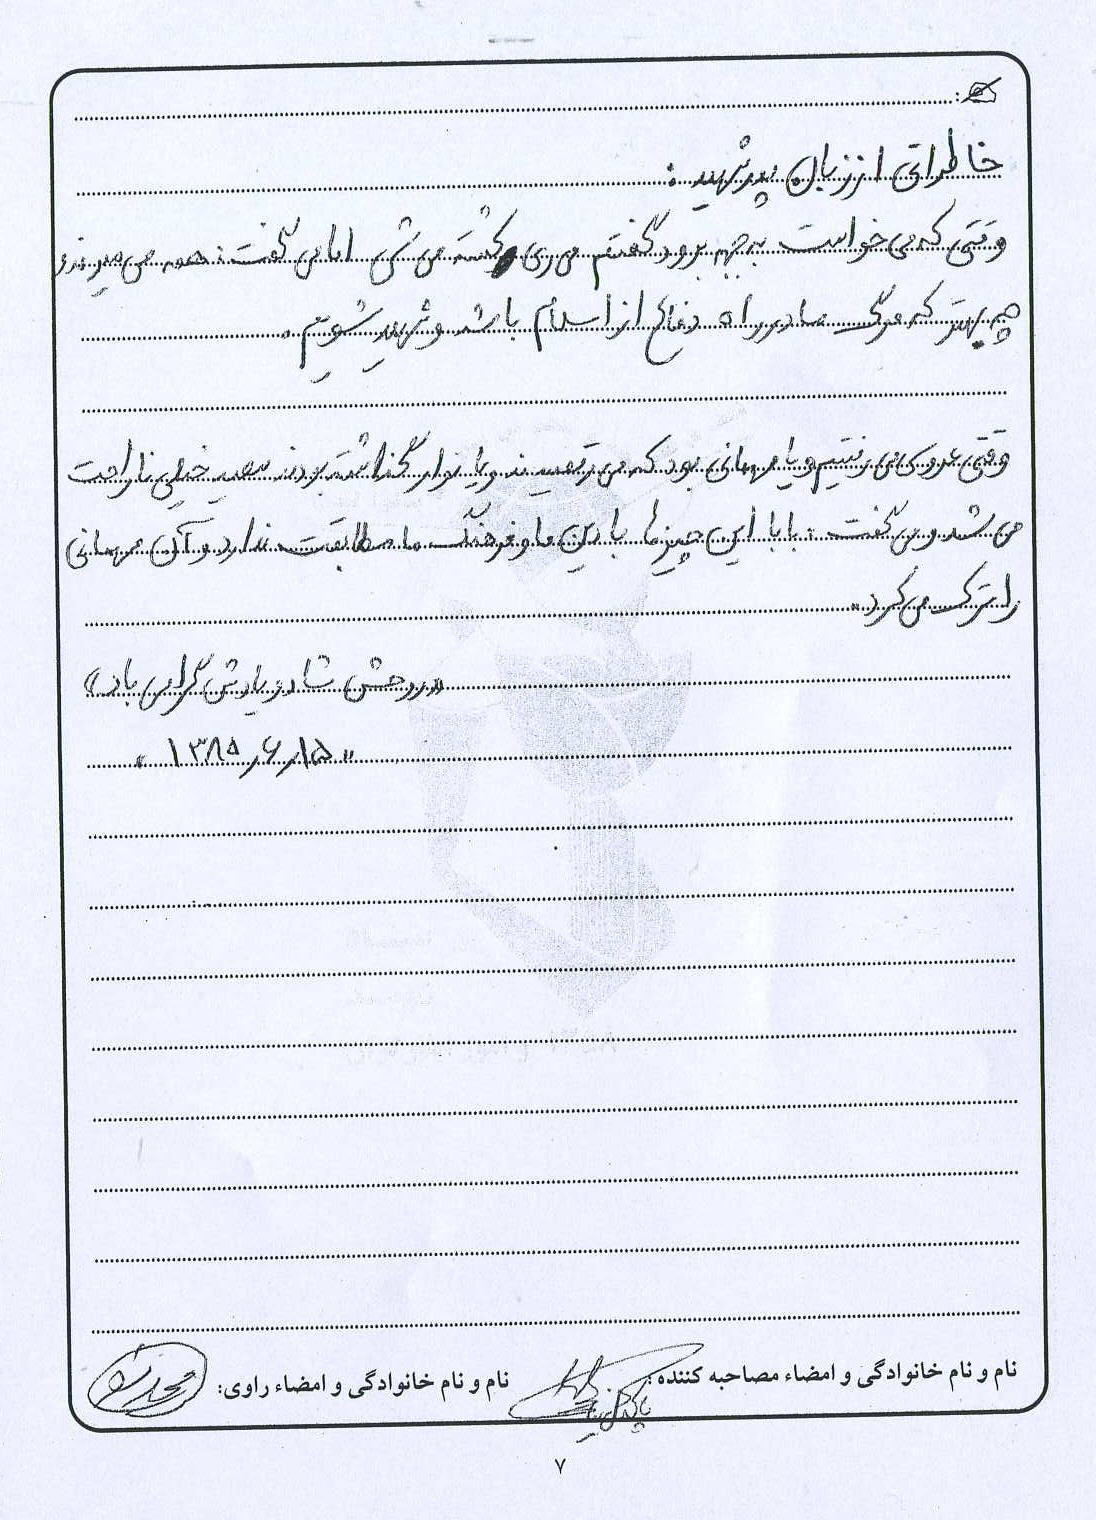 خاطراتی از زبان پدر شهید :
وقتی که می خواست به جبهه برود گفتم می ری کشته می شی اما می گفت : همه می میرند و
چه بهتر که مرگ ما در راه دفاع از اسلام باشد و شهید شویم .
وقتی عروسی می رفتیم و یا مهمانی بود که می رقصیدند و یا نوار گذاشته بودند سعید خیلی ناراحت
می شد و می گفت : بابا این چیزها با دین ما و فرهنگ ما مطابقت ندارد و آن مهمانی
را ترک می کرد .
«روحش شاد و یادش گرامی باد»
" ۱۳۸۵/۶/۱۵ "
نام و نام خانوادگی و امضاء مصاحبه کننده:
نام و نام خانوادگی و امضاء راوی:
۷